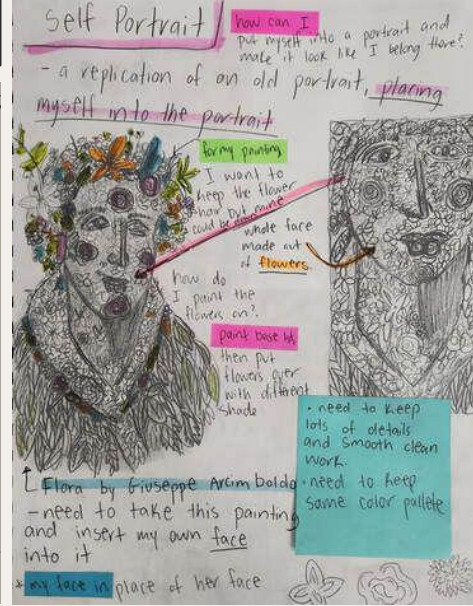 Self Portrait
how can I
put myself into a portrait and
make it look like I belong there?
- a replication of an old portrait, placing
myself into the portrait
for my painting
I want to
keep the flower
hair but mine
could be down
whole face
made out
of flowers
how do
I paint the
flowers on?
paint base 1st
then put
flowers over
with different
shade
• need to keep
lots of details
and smooth clean
work.
• need to keep
same color pallete
Flora by Giuseppe Arcimboldo
- need to take this painting
and insert my own face
into it
* my face in place of her face